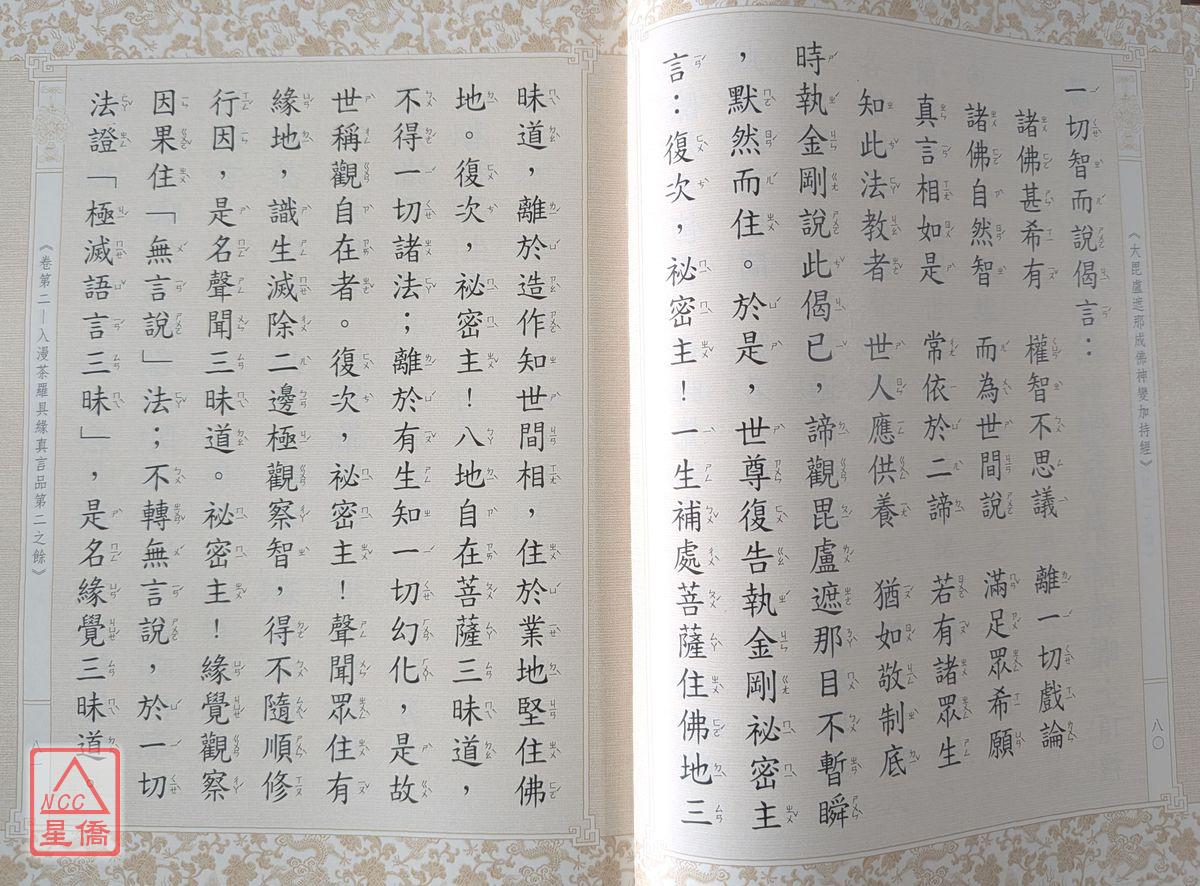 《大毘盧遮那成佛神變加持經》
八〇
一切智而說偈言：
諸佛甚希有　權智不思議　離一切戲論
諸佛自然智　而為世間說　滿足眾希願
真言相如是　常依於二諦　若有諸眾生
知此法教者　世人應供養　猶如敬制底
時執金剛說此偈已，諦觀毘盧遮那目不暫瞬
，默然而住。於是，世尊復告執金剛祕密主
言：復次，祕密主！一生補處菩薩住佛地三
昧道，離於造作知世間相，住於業地堅住佛
地。復次，祕密主！八地自在菩薩三昧道，
不得一切諸法；離於有生知一切幻化，是故
世稱觀自在者。復次，祕密主！聲聞眾住有
緣地，識生滅除二邊極觀察智，得不隨順修
行因，是名聲聞三昧道。祕密主！緣覺觀察
因果住「無言說」法；不轉無言說，於一切
法證「極滅語言三昧」，是名緣覺三昧道。
《卷第二－入漫荼羅具緣真言品第二之餘》
NCC
星僑